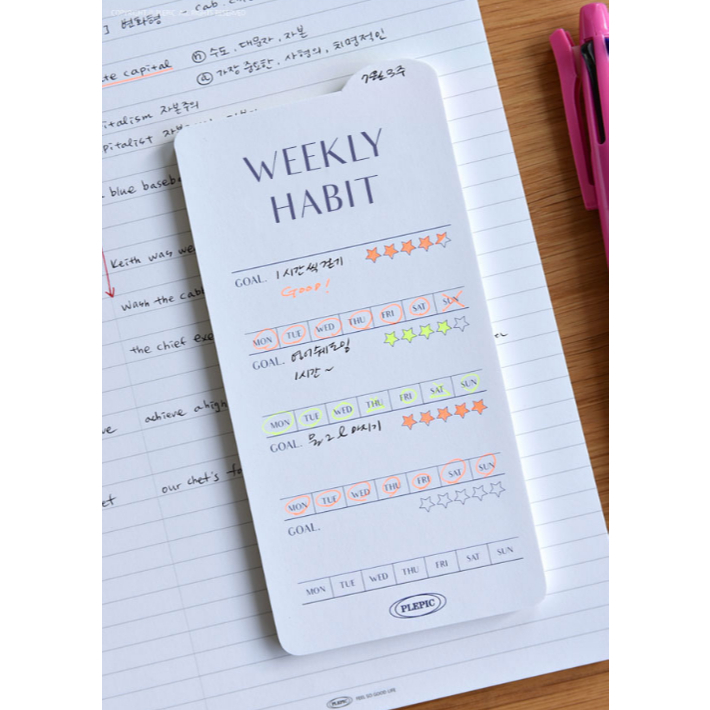 ] 변화형
te capital
ⓝ 수도, 대문자, 자본
ⓐ 가장 중요한, 사형의, 치명적인
italism 자본주의
pitalist
blue baseb
Keith was we
Wash the cab
the chief exe
achieve a high
our chef's fo
7월 3주
WEEKLY
HABIT
GOAL. 1시간씩 걷기
Good!
MON TUE WED THU FRI SAT SUN
GOAL. 영어 쉐도잉
1시간~
MON TUE WED THU FRI SAT SUN
GOAL. 물 2L 마시기
MON TUE WED THU FRI SAT SUN
GOAL.
MON TUE WED THU FRI SAT SUN
PLEPIC
PLEPIC FEEL SO GOOD LIFE